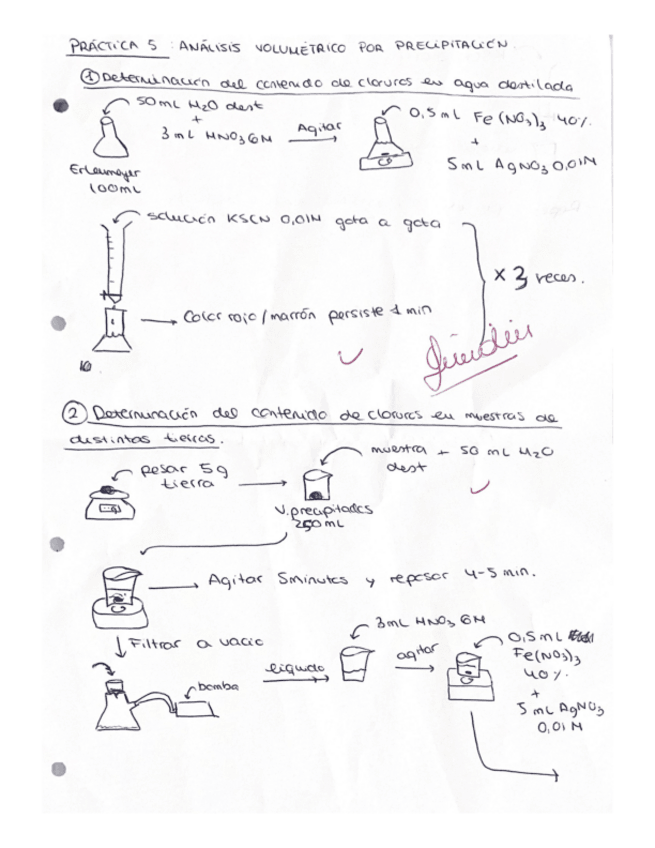 PRÁCTICA 5 : ANÁLISIS VOLUMÉTRICO POR PRECIPITACIÓN.
① Determinación del contenido de cloruros en agua destilada
50mL H2O dest
+
3 mL HNO3 6M
Agitar
0,5 mL Fe(NO3)3 40%
+
5mL AgNO3 0,01N
Erlenmeyer
100mL
solución KSCN 0,01N gota a gota
x 3 veces.
Color rojo/marrón persiste 1 min
② Determinación del contenido de cloruros en muestras de
distintas tierras.
pesar 5g
tierra
muestra + 50 mL H2O
dest
V.precipitados
250mL
Agitar 5minutos y reposar 4-5 min.
Filtrar a vacío
bomba
líquido
3mL HNO3 6M
agitar
0,5mL
Fe(NO3)3
40%
+
5 mL AgNO3
0,01N